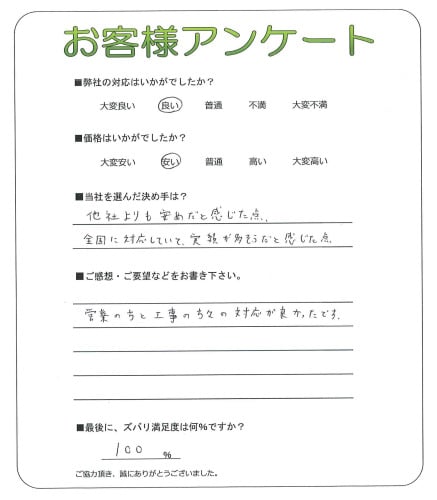 お客様アンケート
■弊社の対応はいかがでしたか?
大変良い 良い 普通 不満 大変不満
■価格はいかがでしたか?
大変安い 安い 普通 高い 大変高い
■当社を選んだ決め手は?
他社よりも安めだと感じた点、
全国に対応していて、実績が多そうだと感じた点
■ご感想・ご要望などをお書き下さい。
営業の方と工事の方々の対応が良かったです。
■最後に、ズバリ満足度は何%ですか?
100 %
ご協力頂き、誠にありがとうございました。